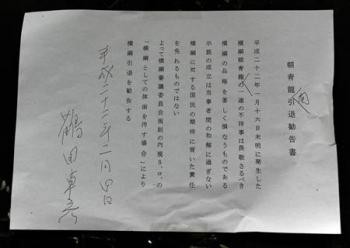 朝青龍引退勧告書
平成二十二年一月十六日未明に発生した
横綱朝青龍の一連の不祥事は長敬さるべき
横綱の品格を著しく損なうものである
示談の成立は当事者間の和解に過ぎない
横綱に対する国民の期待に背いた責任
を免れるものではない
よって横綱審議委員会規則の内規5、ロ、の
「横綱としての体面を汚す場合」により
横綱引退を勧告する
平成二十二年二月四日
鶴田卓彦